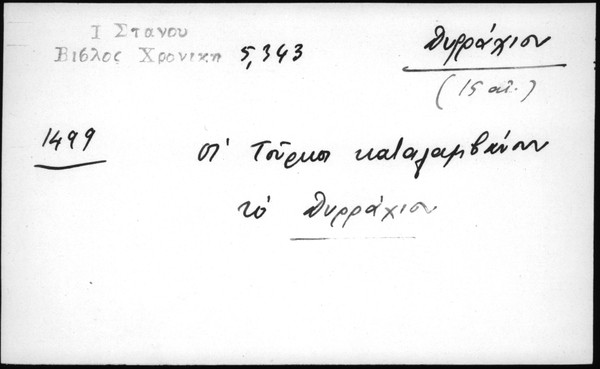 Ι Στανου
Βιβλος Χρονικη 5,343
Δυρράχιον
(15 αἰ.)
1499
οἱ Τοῦρκοι καταλαμβάνουν
τὸ Δυρράχιον